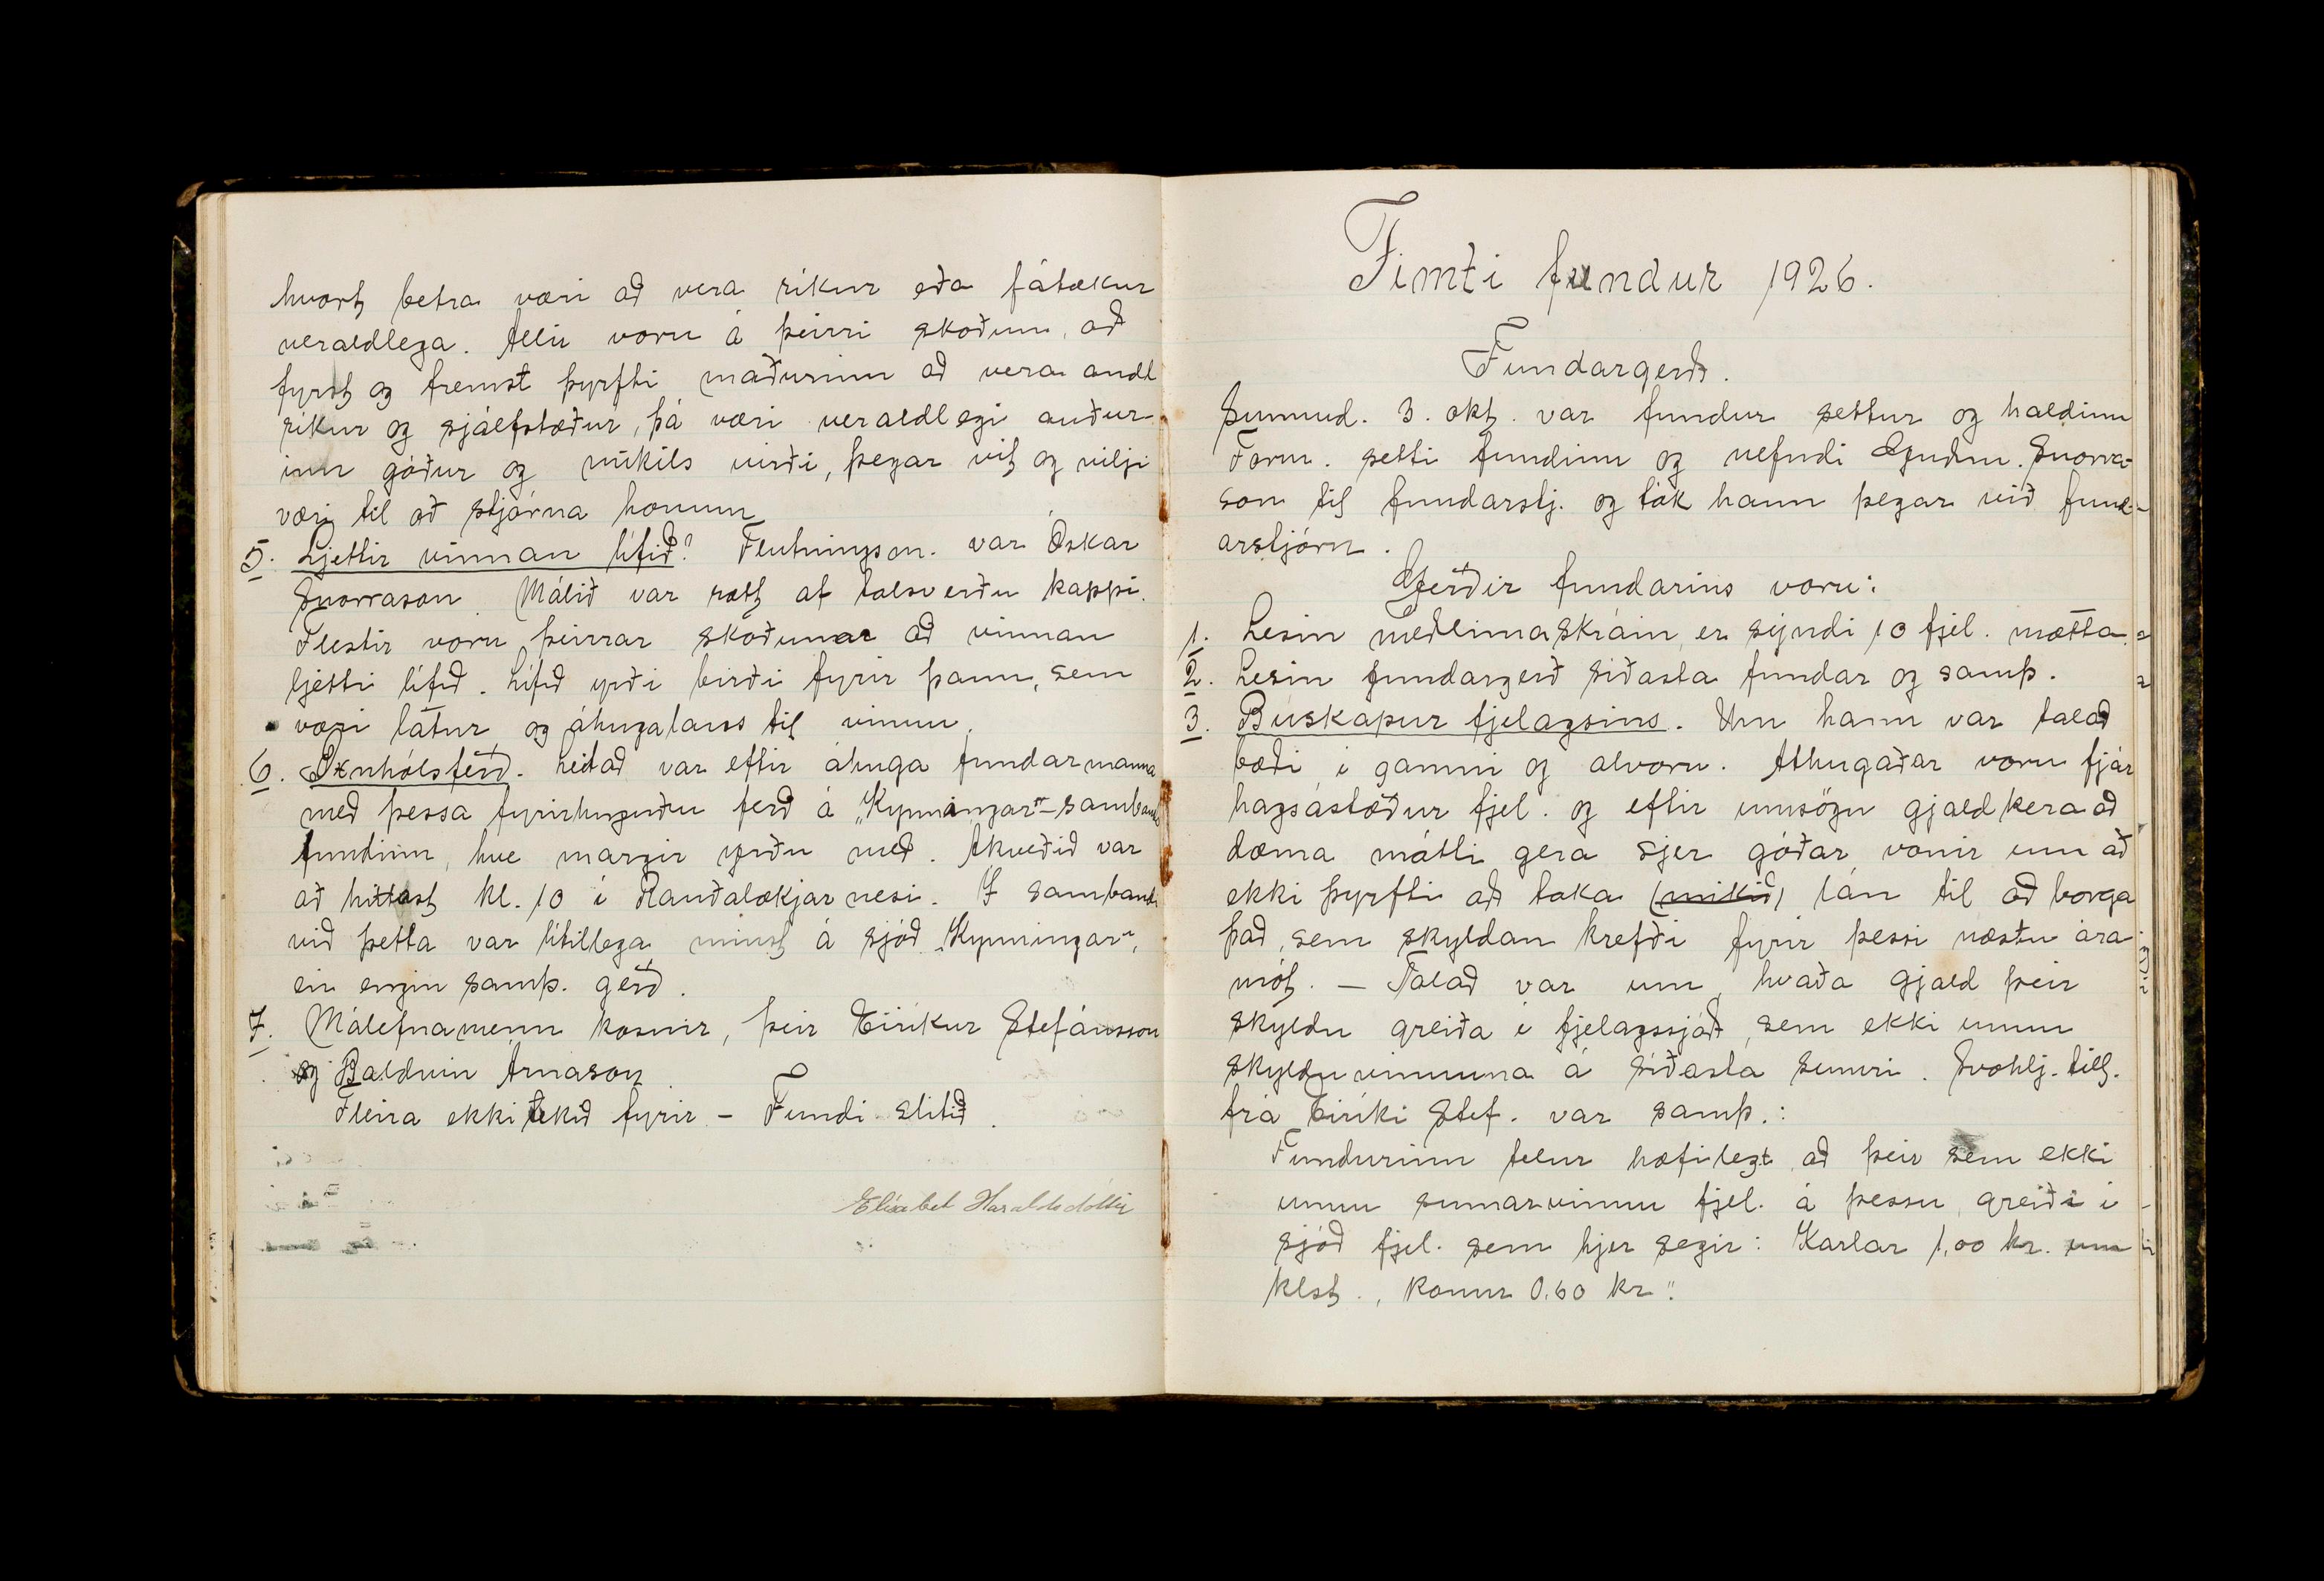 hvort betra væri að vera ríkur eða fátækur
veraldlega. Allir voru á þeirri skoðun, að
fyrst og fremst þyrfti maðurinn að vera andl
ríkur og sjálfstæður, þá væri veraldlegi auður
inn góður og mikils virði, þegar vit og vilji
væri til að stjórna honum
5. Ljettir vinnan lífið? Flutningsm. var Óskar
Snorrason. Málið var rætt af talsverðu kappi.
Flestir voru þeirrar skoðunar að vinnan
ljetti lífið. Lífið yrði birði fyrir þann, sem
væri latur og áhugalaus til vinnu.
6. ferð. Leitað var eftir áhuga fundarmanna
með þessa fyrirhuguðu ferð á „Kynningar"-sambands
fundinn, hve margir yrðu með. Ákveðið var
að hittast kl. 10 í Rauðalækjarnesi. Í sambandi
við þetta var lítillega minst á sjóð „Kynningar",
en engin samþ. gerð.
7. Málefnamenn kosnir, þeir Eiríkur Stefánsson
og Baldvin Árnason
Fleira ekki tekið fyrir - Fundi slitið.
Elísabet Haraldsdóttir
Fimti fundur 1926.
Fundargerð.
Sunnud. 3. okt. var fundur settur og haldinn
Form. setti fundinn og nefndi Guðm. Snorra-
son til fundarstj. og tók hann þegar við fund-
arstjórn.
Gerðir fundarins voru:
1. Lesin meðlimaskráin, er sýndi 10 fjel. mætta.
2. Lesin fundargerð síðasta fundar og samþ.
3. Búskapur fjelagsins. Um hann var talað
bæði í gamni og alvöru. Athugaðar voru fjár
hagsástæður fjel. og eftir umsögn gjaldkera að
dæma mátti gera sjer góðar vonir um að
ekki þyrfti að taka (mikið) lán til að borga
það, sem skyldan krefði fyrir þessi næstu ára
mót. - Talað var um, hvaða gjald þeir
skyldu greiða í fjelagssjóð, sem ekki unnu
skylduvinnuna á síðasta sumri. Svohlj. till.
frá Eiríki Stef. var samþ.:
Fundurinn telur hæfilegt, að þeir sem ekki
unnu sumarvinnu fjel. á þessu, greiði í
sjóð fjel. sem hjer segir: Karlar 1,00 kr. um
klst., konur 0.60 kr."